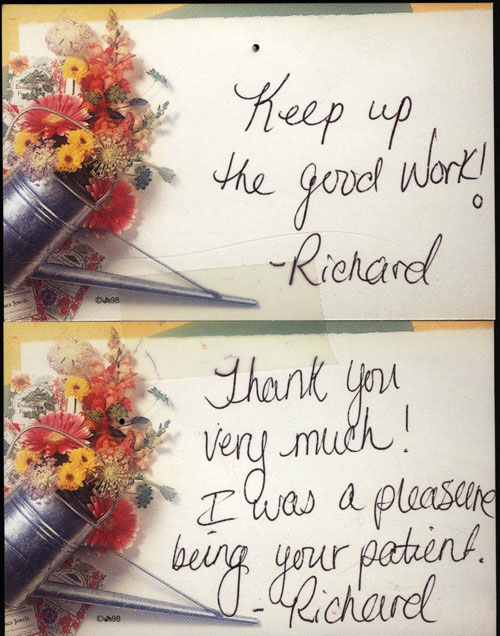 Keep up
the good work!
-Richard
©JR98
Thank you
very much!
I was a pleasure
being your patient.
- Richard
©JR98